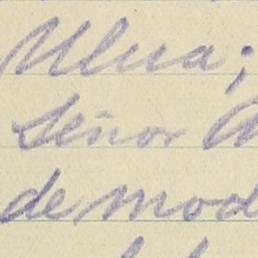 Ulua;
Señor
de mod